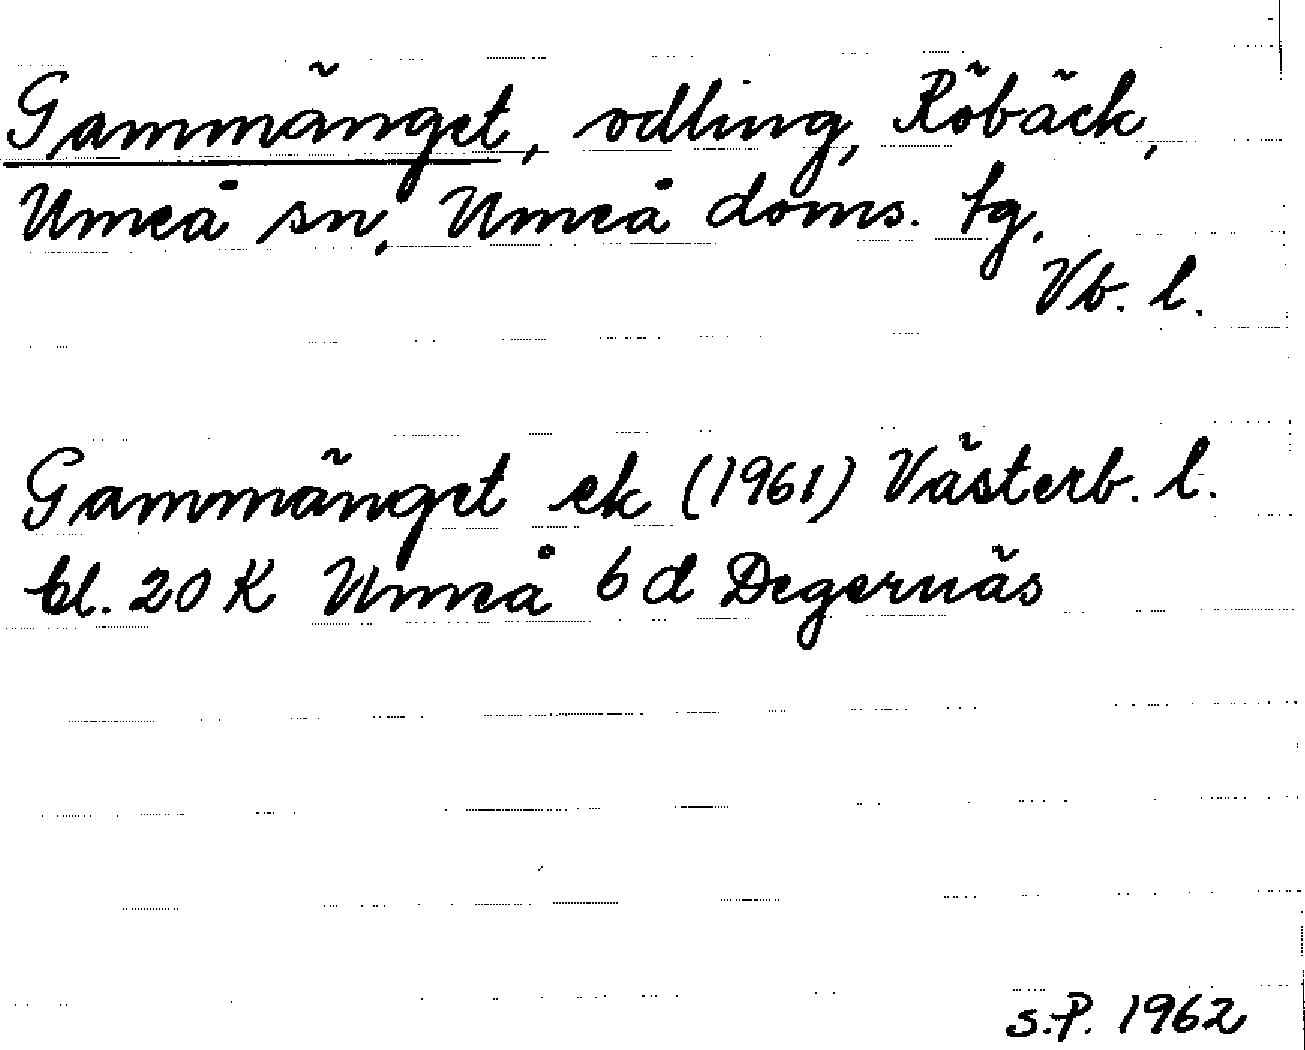 Gammänget, odling, Röbäck,
Umeå sn, Umeå doms. tg.
Vb. l.
Gammänget ek (1961) Västerb. l.
bl. 20 K Umeå 6 d Degernäs
S.P. 1962